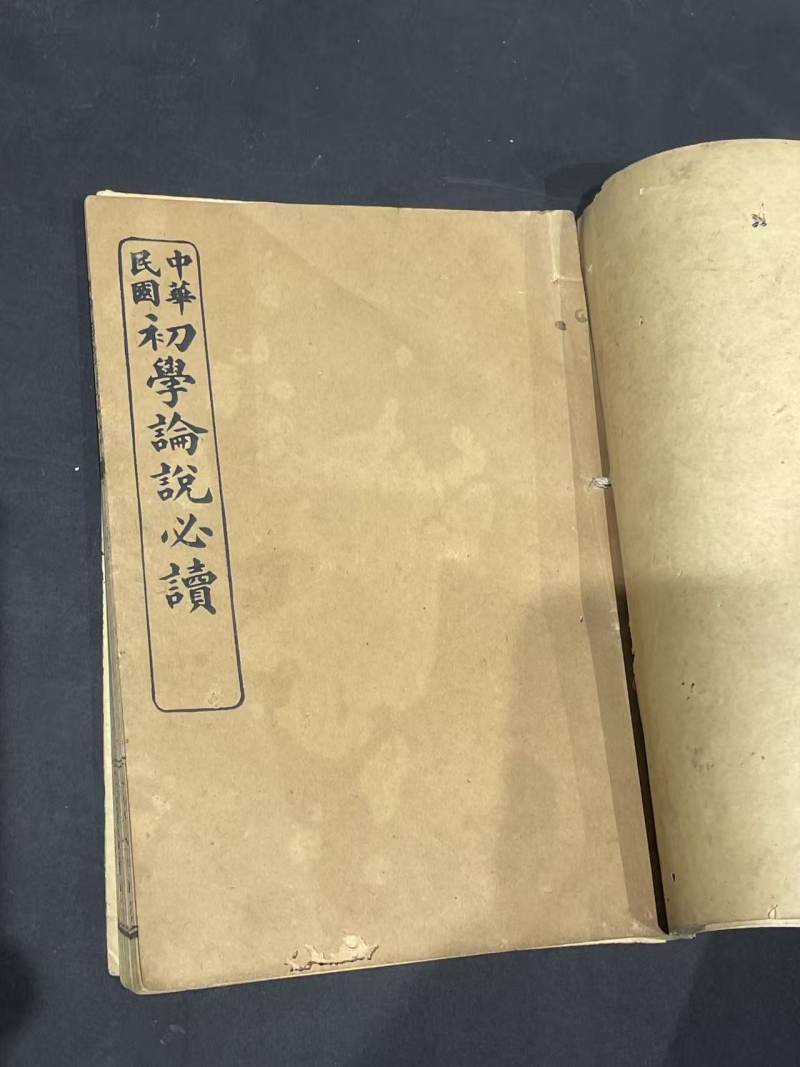 中華
民國
初學論說必讀